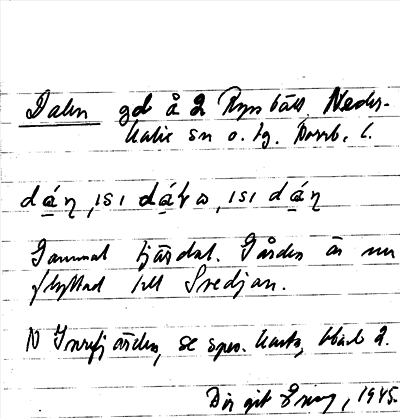 Dalen gd å 2 Ryssbält, Neder-
kalix sn o. tg. Norrb. l.
dáṇ, ısı dáḷɐ, ısı dáṇ
Gammal fjärdal. Gården är nu
flyttad till Svedjan.
N Innefjärden, se spec. karta, blad 2.
1945.